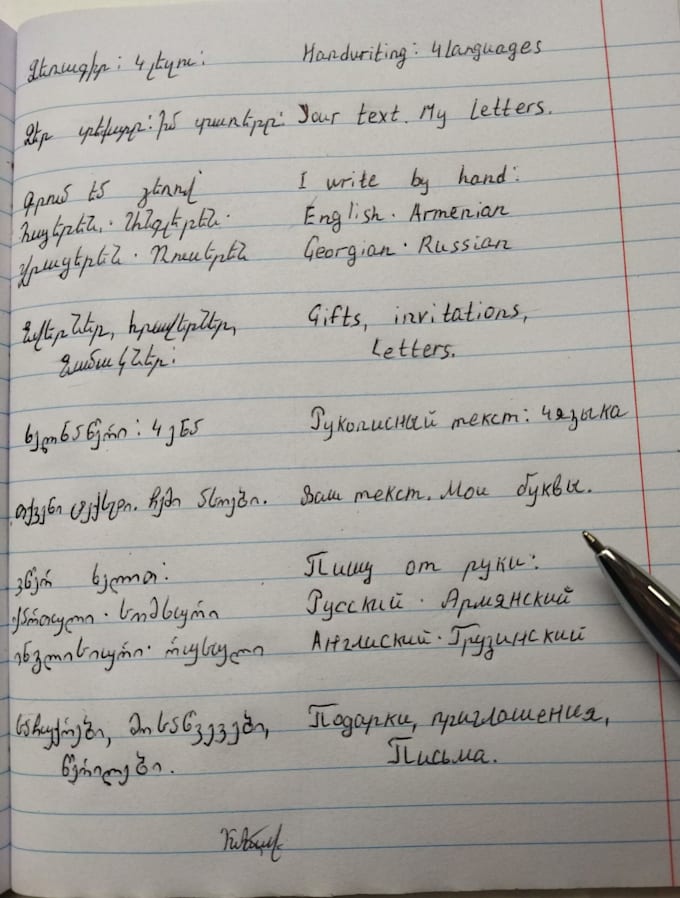 Ձեռագիր: 4 լեզու:
Ձեր տեքստը: Իմ տառերը:
Գրում եմ ձեռքով
Հայերեն. Անգլերեն.
Վրացերեն · Ռուսերեն
Նվերներ, հրավերներ,
Նամակներ:
Handwriting: 4 languages
Your text. My Letters.
I write by hand:
English · Armenian
Georgian · Russian
Gifts, invitations,
Letters.
ხელნაწერი: 4 ენა
თქვენი ტექსტი. ჩემი ასოები.
ვწერ ხელით:
ქართული · სომხური
ინგლისური · რუსული
საჩუქრები, მოსაწვევები,
წერილები.
Рукописный текст: 4 языка
Ваш текст. Мои буквы.
Пишу от руки:
Русский · Армянский
Англиский · Грузинский
Подарки, приглашения,
Письма.